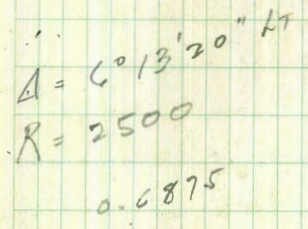 Δ = 6° 13' 20" LT
R = 2500
0.6875